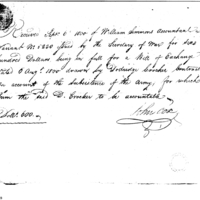 Received Sepr 6 1800 of William Simmons Accountant
Warrant No 1220 given by the Secretary of War for Six
hundred Dollars being in full for a Bill of Exchange
6 Augt 1800 drawn by Crocker
on account of the subsistence of the army, for which
him the said D. Crocker to be accountable
Dolls. 600.
John